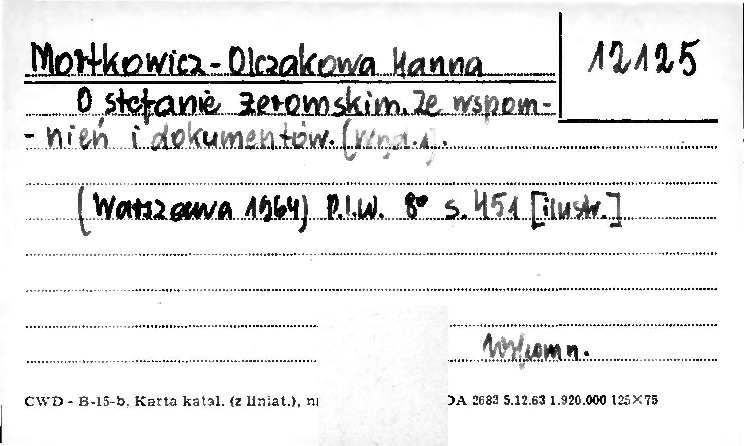 Mortkowicz-Olczakowa Hanna
12125
O Stefanie Żeromskim. Ze wspom-
-nień i dokumentów. (Wyd. 1).
(Warszawa 1964) P.I.W. 8° s. 451 [ilustr.]
Wspomn.
CWD - B-15-b, Karta katal. (z liniat.), DA 2683 5.12.63 1.920.000 125×75